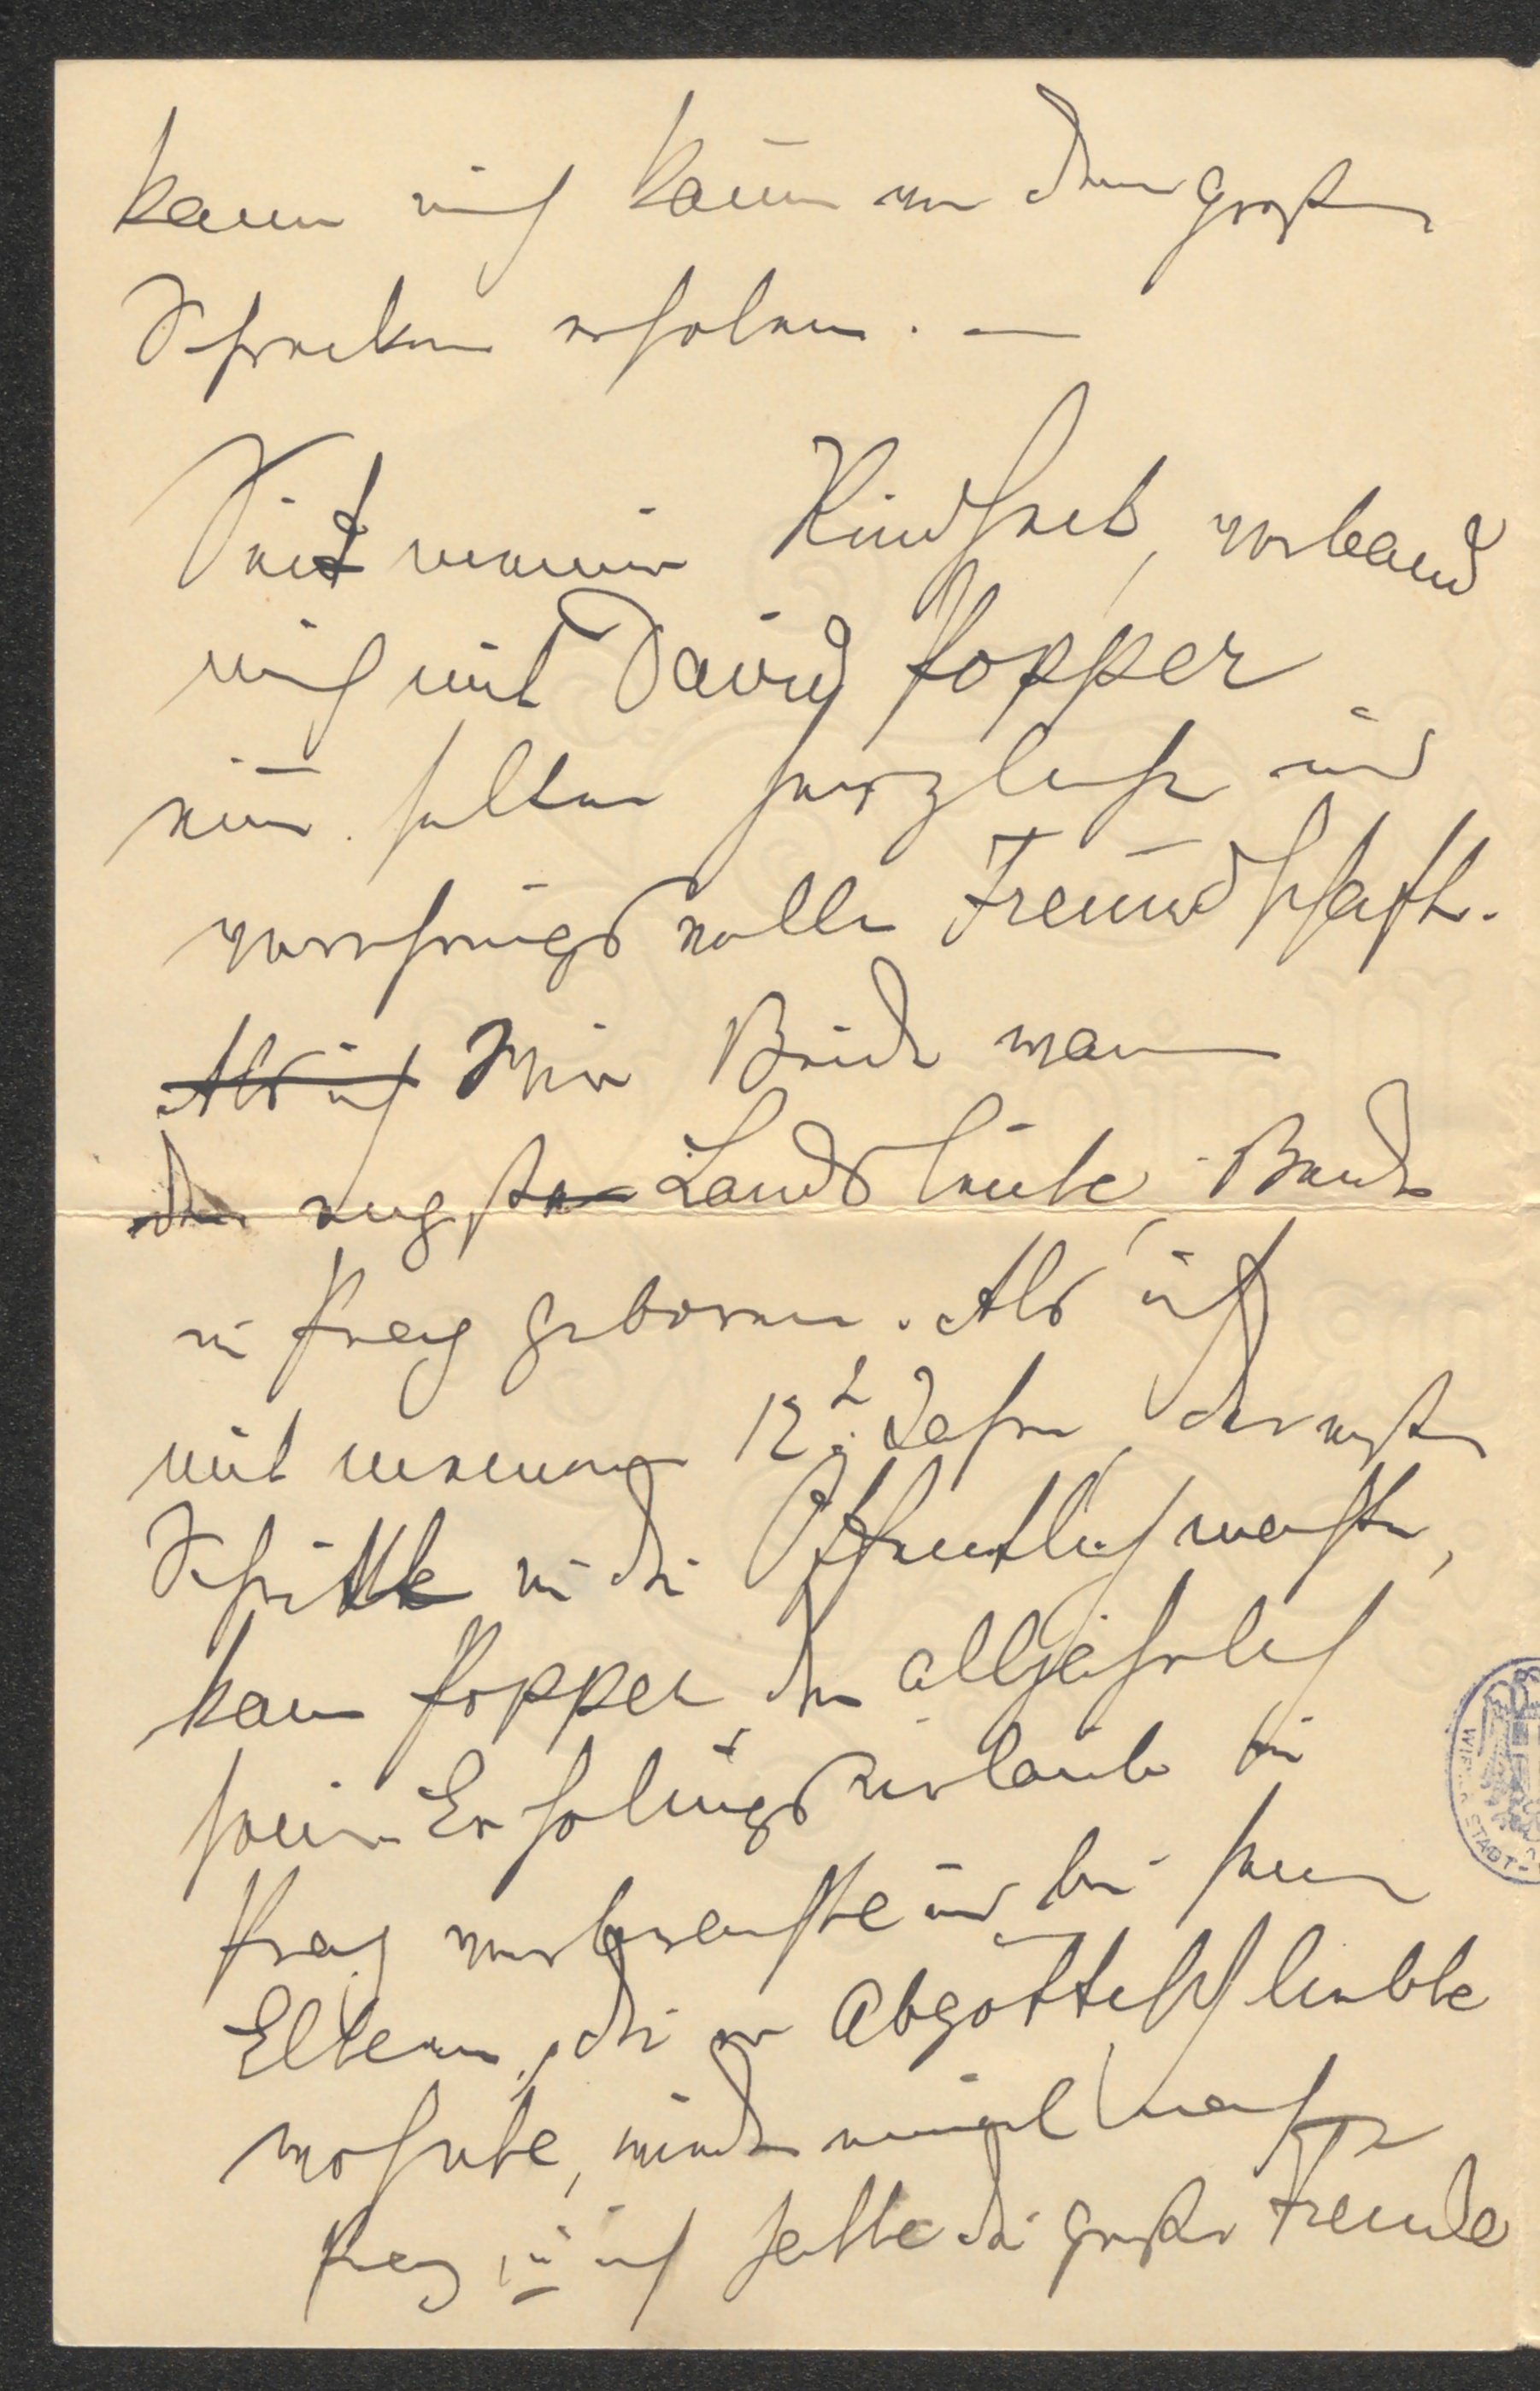 kann mich kaum von dem großen
Schrecken erholen. —
Seit meiner Kindheit, verband
mich mit David Popper
eine selten herzliche und
verehrungsvolle Freundschaft.
Als ich Wir Beide waren
die engsten Landsleute, Beide
in Prag geboren. Als ich
mit meinem 12t. Jahre, die ersten
Schritte in die Öffentlichkeit machte,
kam Popper, der alljährlich
seinen Erholungsurlaub in
Prag verbrachte und bei seinen
Eltern, die er abgöttisch liebte
wohnte, wieder einmal nach
Prag, u ich hatte die große Freude
WIENER STADT-